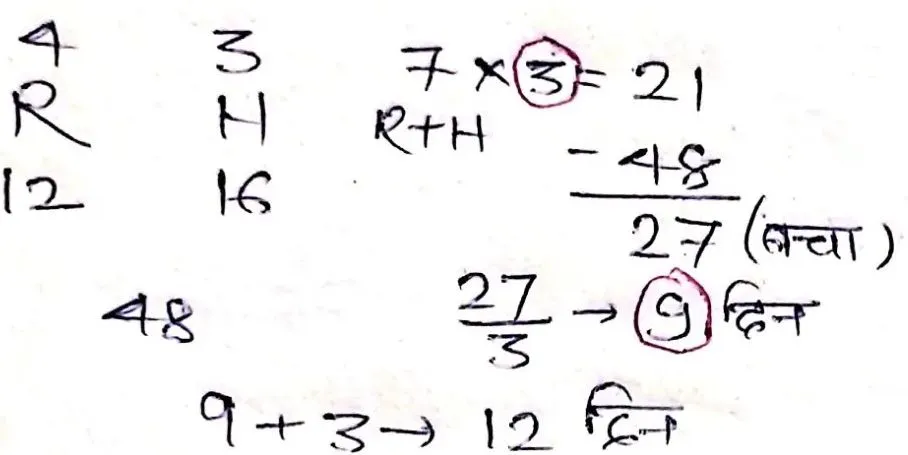 4 3 7 × 3 = 21
R H R+H
12 16 - 48
27 (बचा)
48 27/3 → 9 दिन
9 + 3 → 12 दिन